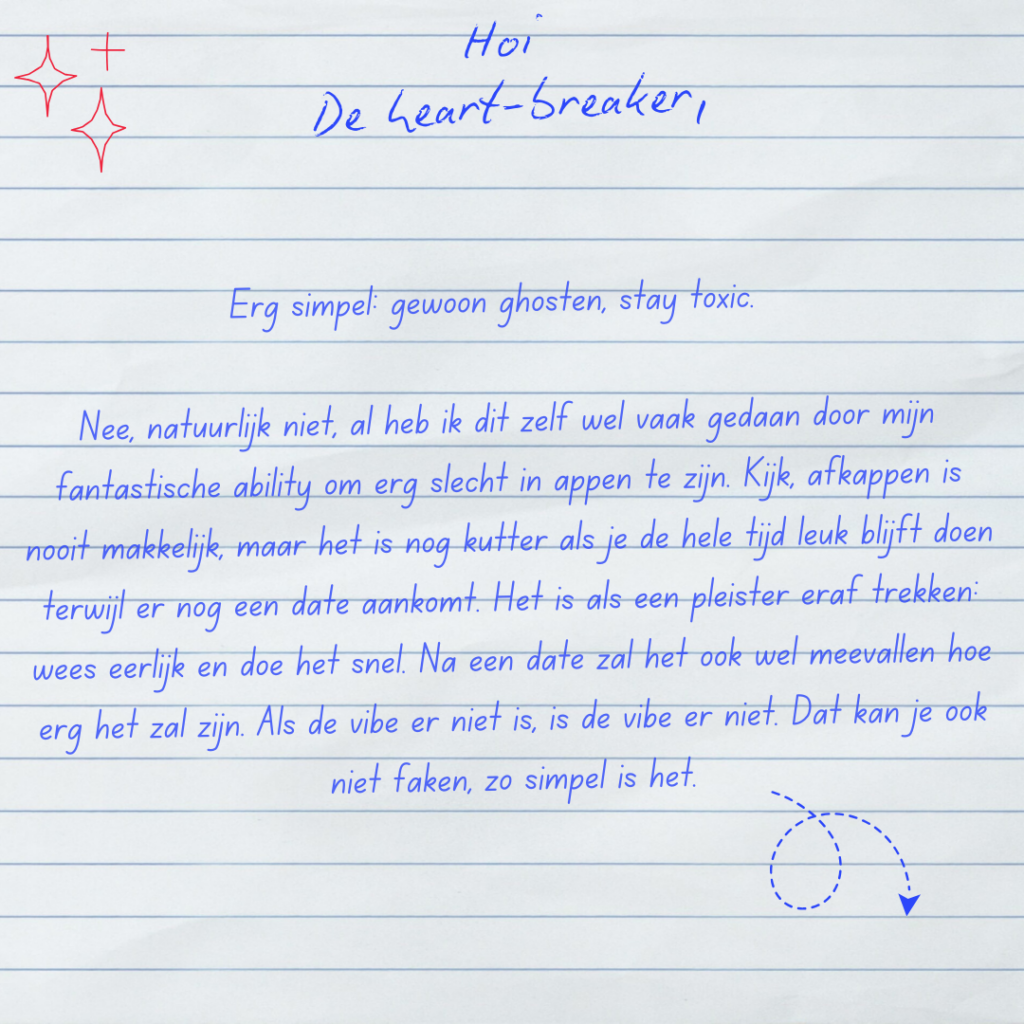 Hoi
De heart-breaker,
Erg simpel: gewoon ghosten, stay toxic.
Nee, natuurlijk niet, al heb ik dit zelf wel vaak gedaan door mijn
fantastische ability om erg slecht in appen te zijn. Kijk, afkappen is
nooit makkelijk, maar het is nog kutter als je de hele tijd leuk blijft doen
terwijl er nog een date aankomt. Het is als een pleister eraf trekken:
wees eerlijk en doe het snel. Na een date zal het ook wel meevallen hoe
erg het zal zijn. Als de vibe er niet is, is de vibe er niet. Dat kan je ook
niet faken, zo simpel is het.